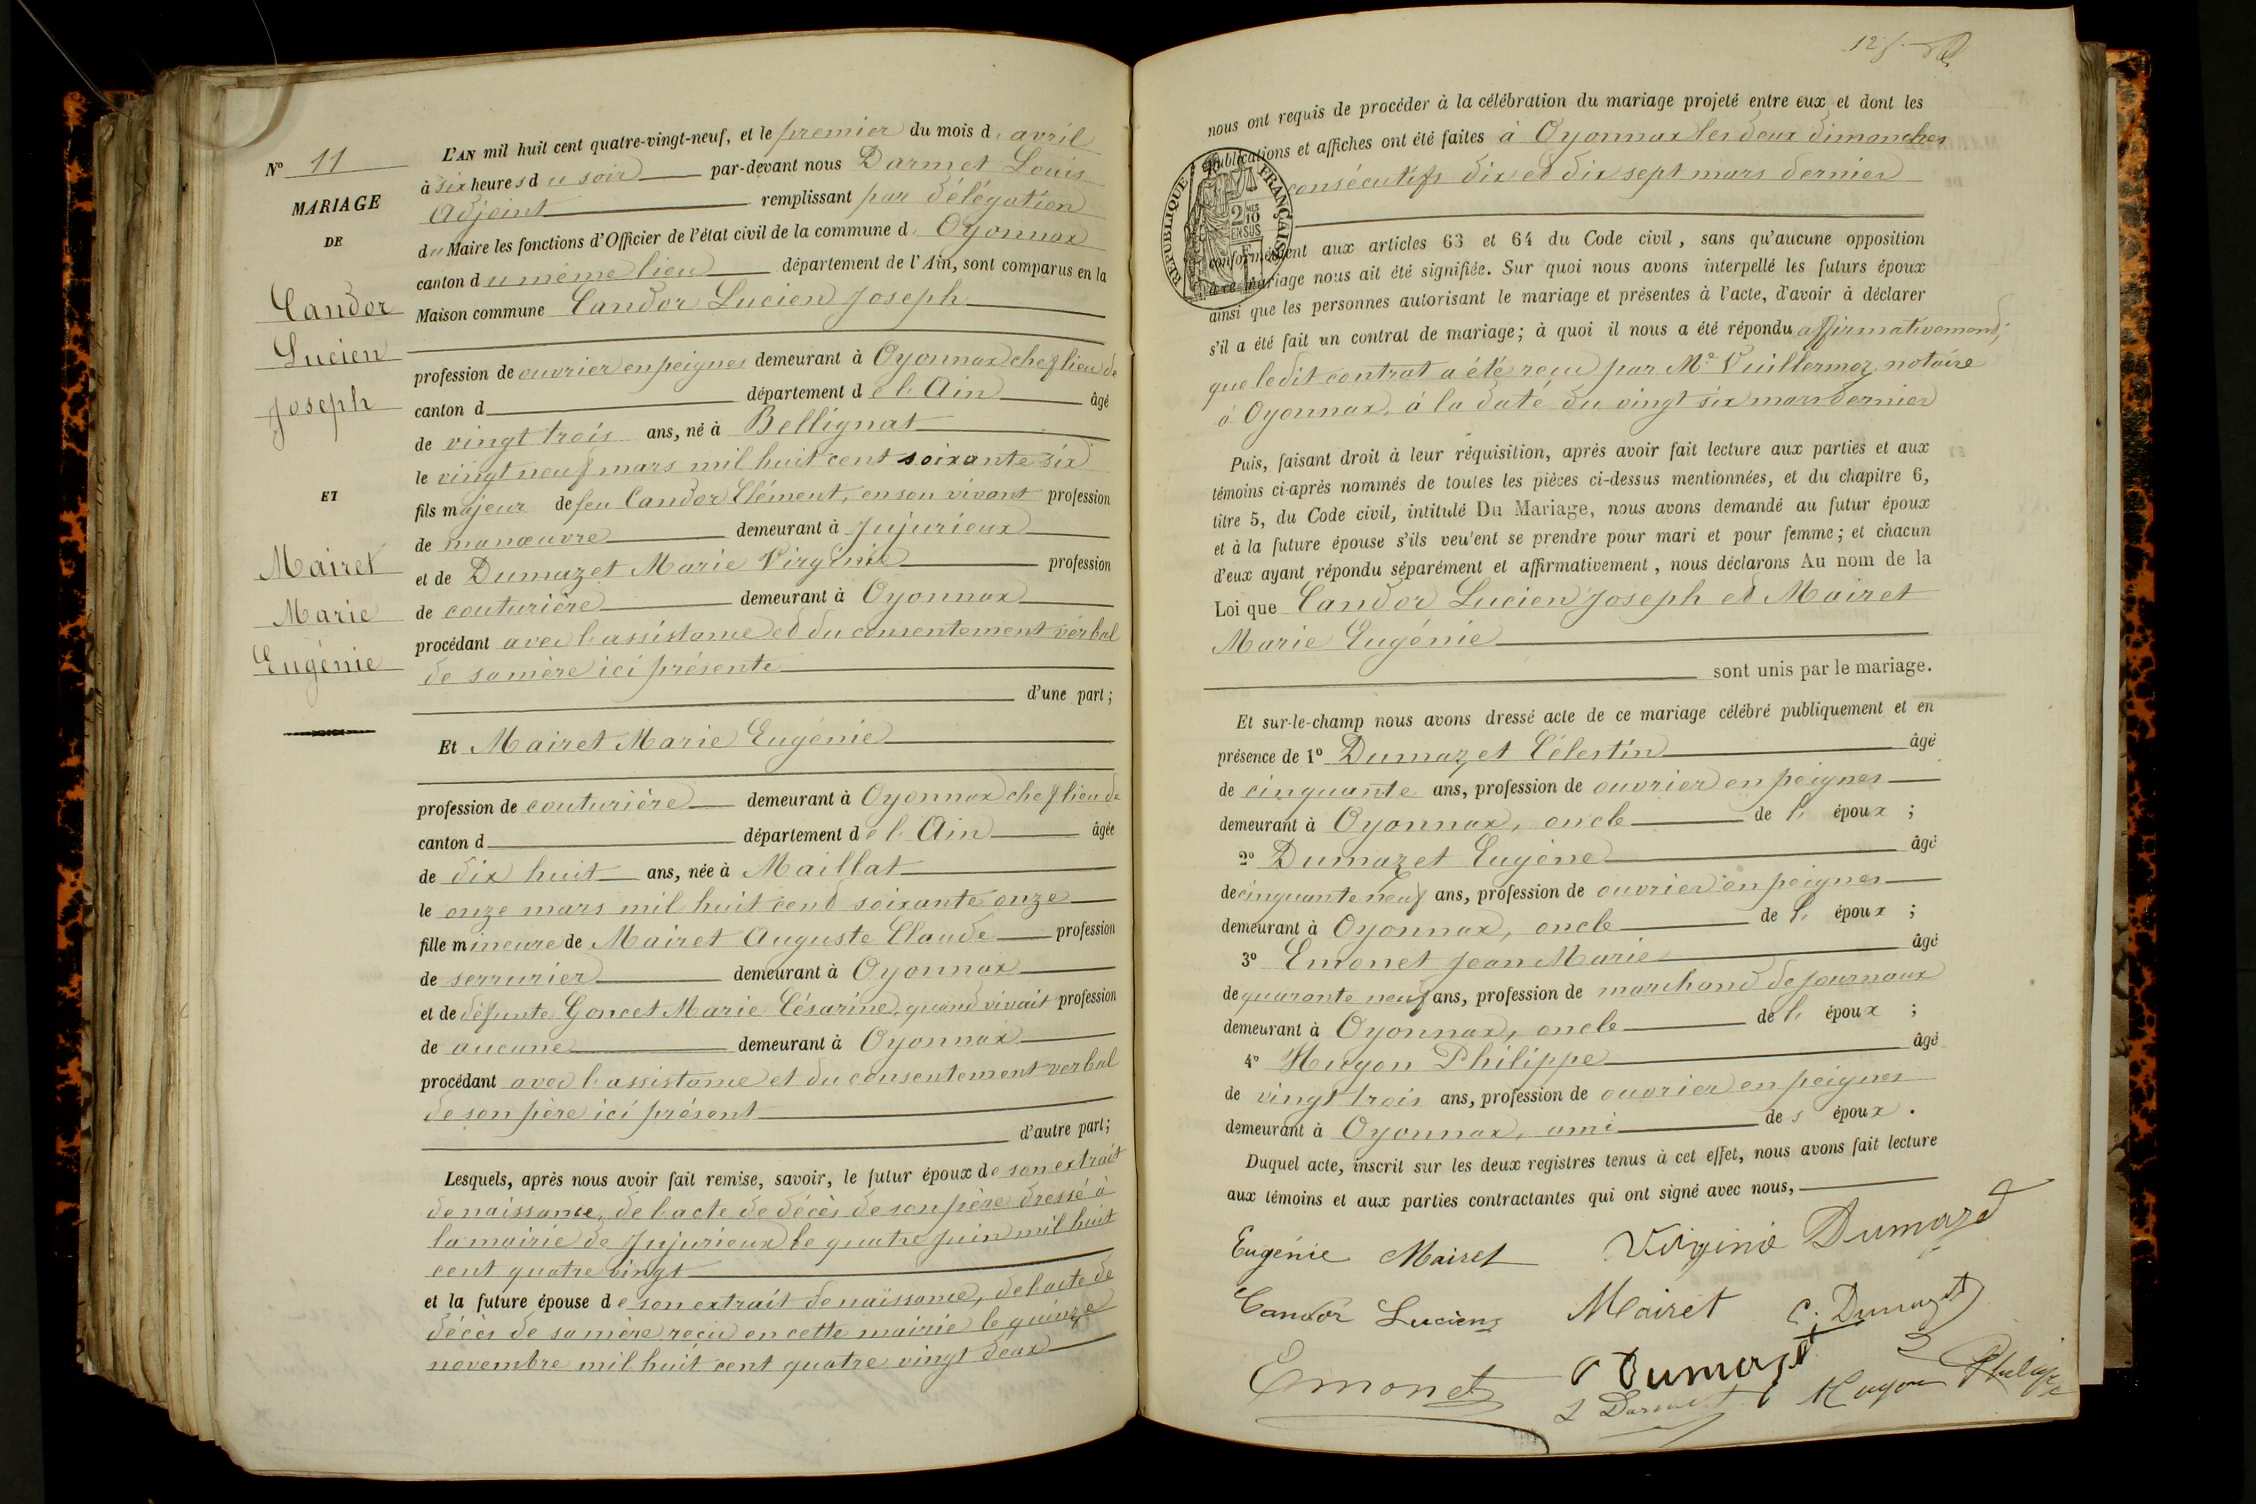 Nº 11
MARIAGE
DE
Candor
Lucien
Joseph
ET
Mairet
Marie
Eugénie
L'AN mil huit cent quatre-vingt-neuf, et le premier du mois d'avril
à six heures du soir par-devant nous Darmet Louis
Adjoint remplissant par délégation
du Maire les fonctions d'Officier de l'état civil de la commune d'Oyonnax
canton du même lieu département de l'Ain, sont comparus en la
Maison commune Candor Lucien Joseph
profession de ouvrier en peignes demeurant à Oyonnax chef lieu de
canton d département de l'Ain âgé
de vingt trois ans, né à Bellignat
le vingt neuf mars mil huit cent soixante six
fils majeur de feu Candor Clément, en son vivant profession
de manœuvre demeurant à Jujurieux
et de Dumazet Marie Virginie profession
de couturière demeurant à Oyonnax
procédant avec l'assistance et du consentement verbal
de sa mère ici présente
d'une part ;
Et Mairet Marie Eugénie
profession de couturière demeurant à Oyonnax chef lieu de
canton d département de l'Ain âgée
de dix huit ans, née à Maillat
le onze mars mil huit cent soixante onze
fille mineure de Mairet Auguste Claude profession
de serrurier demeurant à Oyonnax
et de défunte Goncet Marie Césarine, quand vivait profession
de aucune demeurant à Oyonnax
procédant avec l'assistance et du consentement verbal
de son père ici présent
d'autre part;
Lesquels, après nous avoir fait remise, savoir, le futur époux de son extrait
de naissance, de l'acte de décès de son père dressé à
la mairie de Jujurieux le quatre juin mil huit
cent quatre vingt
et la future épouse de son extrait de naissance, de l'acte de
décès de sa mère reçu en cette mairie le quinze
novembre mil huit cent quatre vingt deux
125
nous ont requis de procéder à la célébration du mariage projeté entre eux et dont les
publications et affiches ont été faites à Oyonnax les deux dimanches
consécutifs dix et dix sept mars dernier
RÉPUBLIQUE FRANÇAISE
2 MES 10 EN SUS
conformément aux articles 63 et 64 du Code civil, sans qu'aucune opposition
à ce mariage nous ait été signifiée. Sur quoi nous avons interpellé les futurs époux
ainsi que les personnes autorisant le mariage et présentes à l'acte, d'avoir à déclarer
s'il a été fait un contrat de mariage ; à quoi il nous a été répondu affirmativement,
que ledit contrat a été reçu par Me Vuillermoz, notaire
à Oyonnax, à la date du vingt six mars dernier
Puis, faisant droit à leur réquisition, après avoir fait lecture aux parties et aux
témoins ci-après nommés de toutes les pièces ci-dessus mentionnées, et du chapitre 6,
titre 5, du Code civil, intitulé Du Mariage, nous avons demandé au futur époux
et à la future épouse s'ils veulent se prendre pour mari et pour femme ; et chacun
d'eux ayant répondu séparément et affirmativement, nous déclarons Au nom de la
Loi que Candor Lucien Joseph et Mairet
Marie Eugénie
sont unis par le mariage.
Et sur-le-champ nous avons dressé acte de ce mariage célébré publiquement et en
présence de 1º Dumazet Célestin âgé
de cinquante ans, profession de ouvrier en peignes
demeurant à Oyonnax, oncle de l' époux ;
2º Dumazet Eugène âgé
de cinquante neuf ans, profession de ouvrier en peignes
demeurant à Oyonnax, oncle de l' époux ;
3º Emonet Jean Marie âgé
de quarante neuf ans, profession de marchand de journaux
demeurant à Oyonnax, oncle de l' époux ;
4º Hugon Philippe âgé
de vingt trois ans, profession de ouvrier en peignes
demeurant à Oyonnax, ami des époux.
Duquel acte, inscrit sur les deux registres tenus à cet effet, nous avons fait lecture
aux témoins et aux parties contractantes qui ont signé avec nous,
Eugénie Mairet Virginie Dumazet
Candor Lucien Mairet C. Dumazet
Emonet Dumazet
L Darmet Hugon Philippe